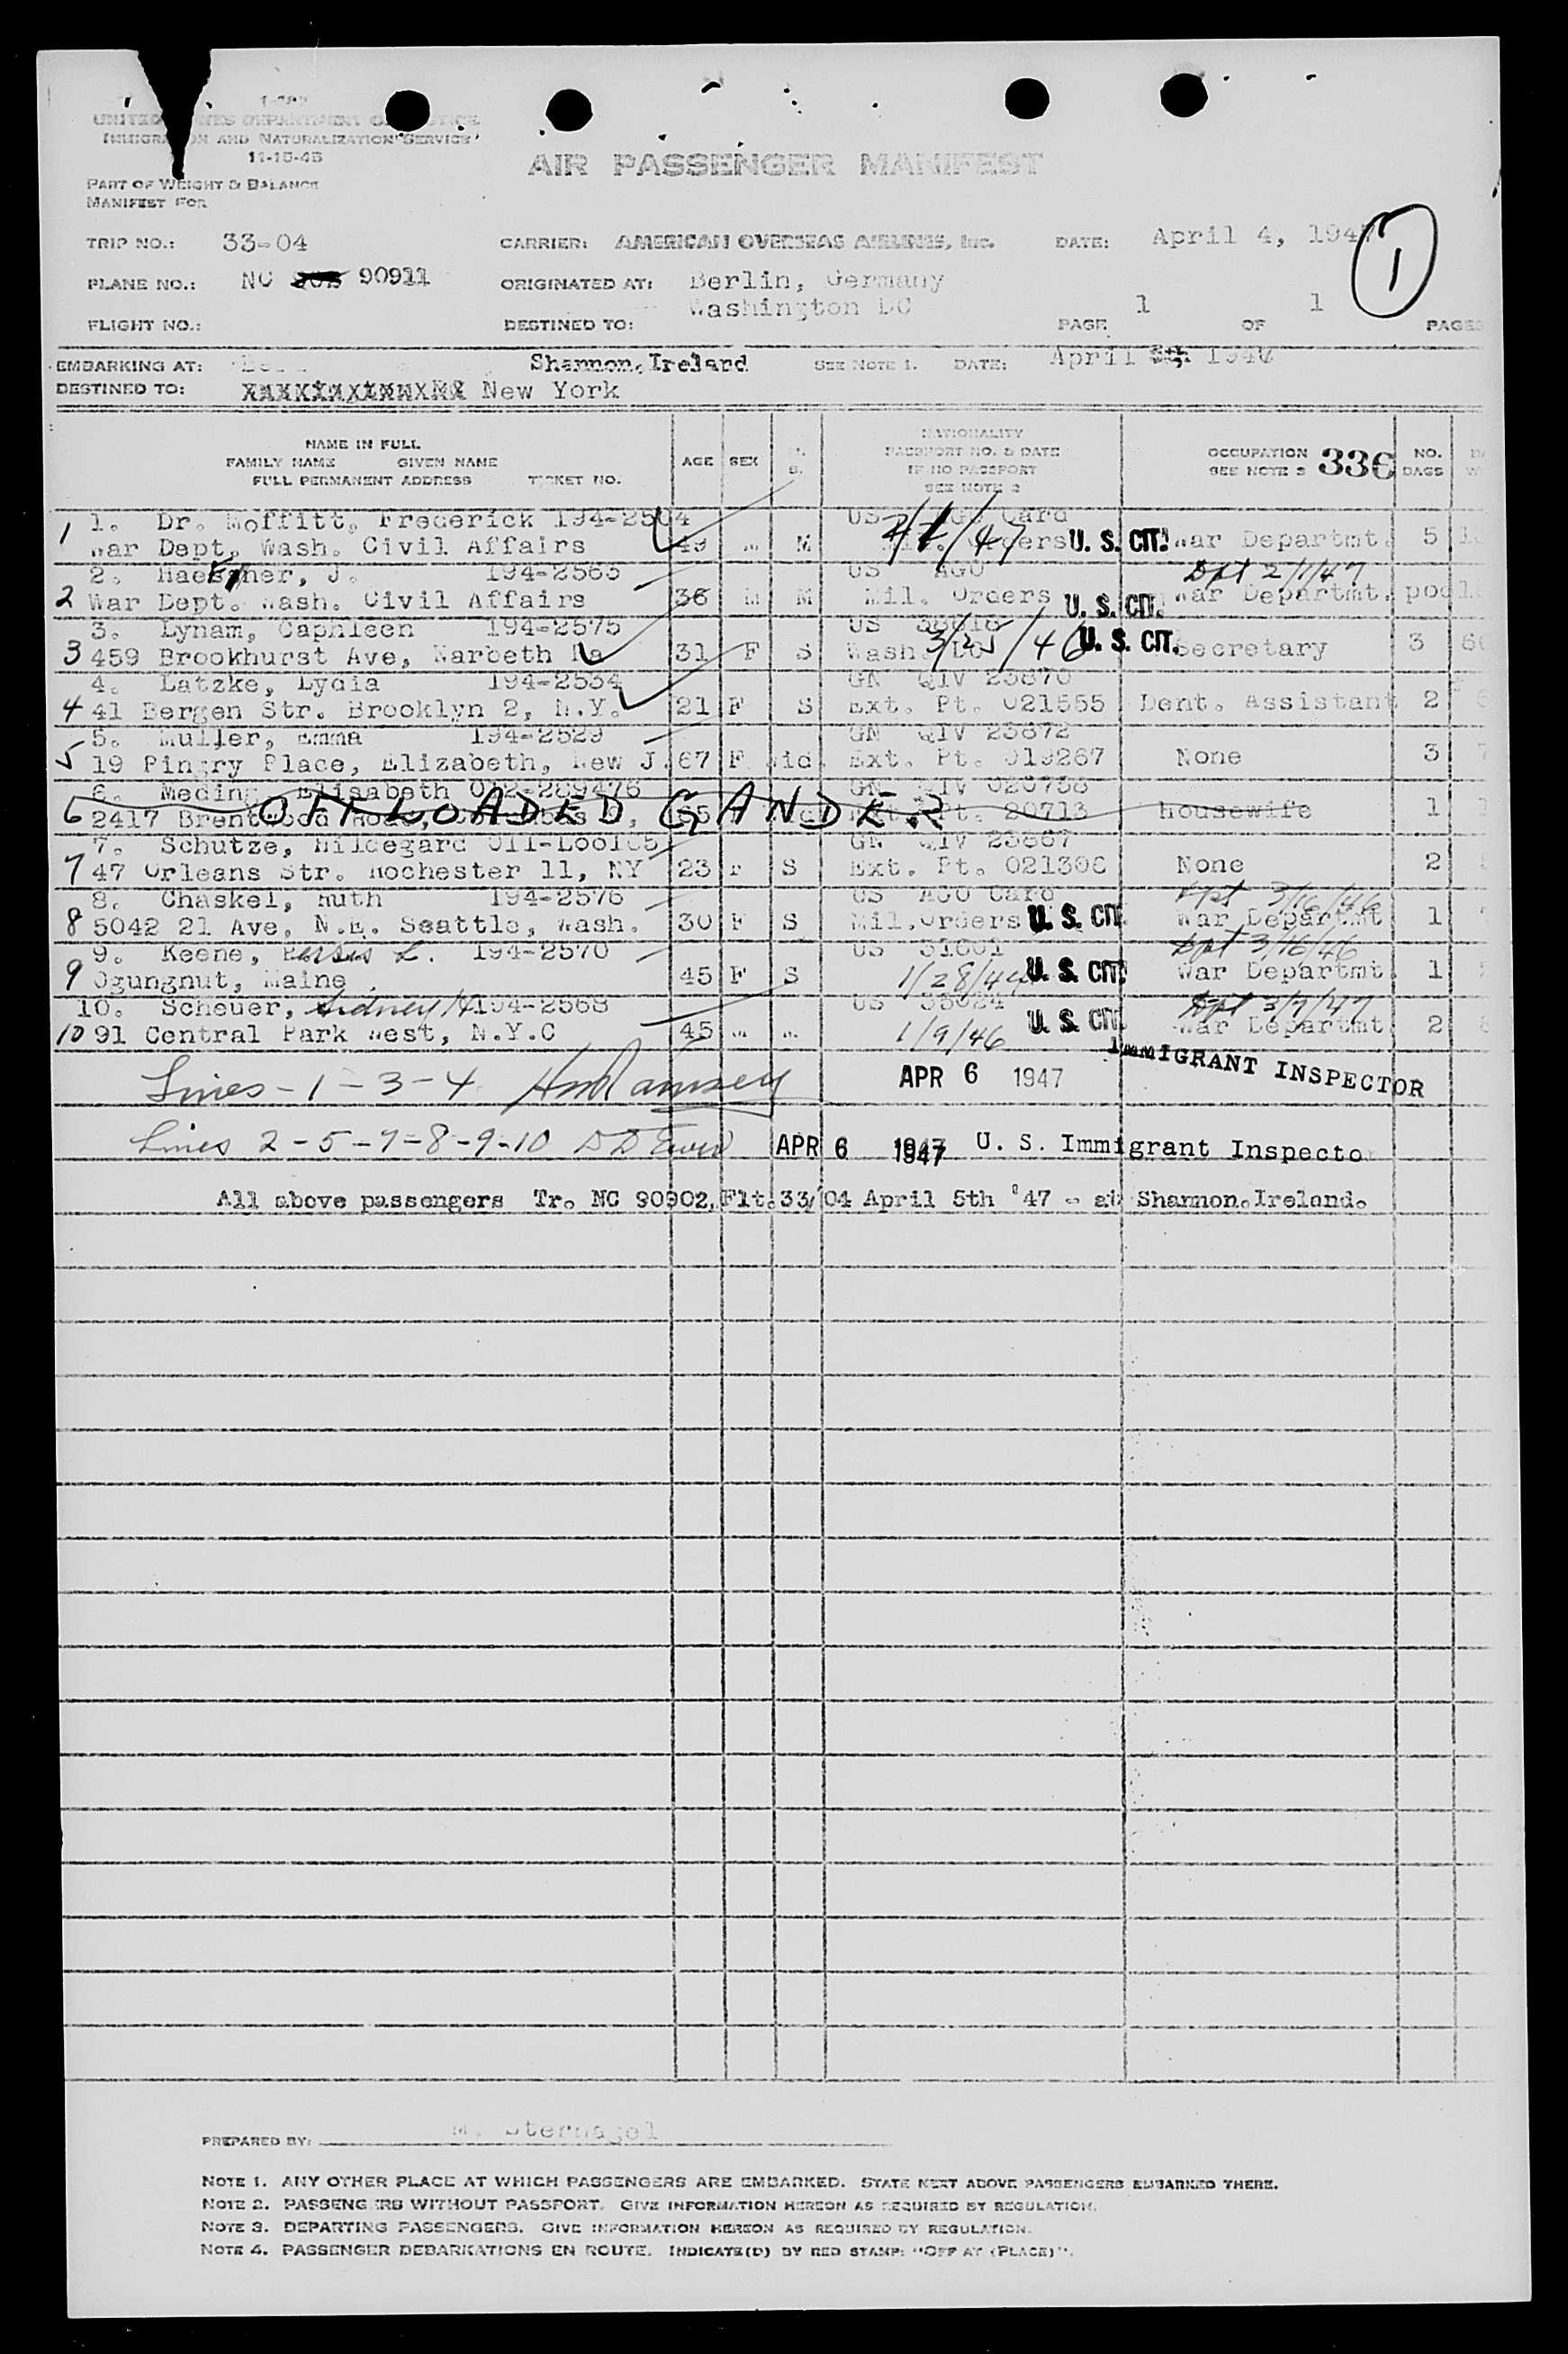 UNITED STATES DEPARTMENT OF JUSTICE
IMMIGRATION AND NATURALIZATION SERVICE
11-15-45
AIR PASSENGER MANIFEST
PART OF WEIGHT & BALANCE
MANIFEST FOR
TRIP NO.: 33-04 CARRIER: AMERICAN OVERSEAS AIRLINES, Inc. DATE: April 4, 1947
1
PLANE NO.: NC 90911 ORIGINATED AT: Berlin, Germany
FLIGHT NO.: DESTINED TO: Washington DC PAGE 1 OF 1 PAGES
EMBARKING AT: Shannon.Ireland SEE NOTE 1. DATE: April 5th 1947
DESTINED TO: New York
NAME IN FULL
FAMILY NAME GIVEN NAME
FULL PERMANENT ADDRESS TICKET NO.
AGE SEX
NATIONALITY
PASSPORT NO. & DATE
IF NO PASSPORT
SEE NOTE 2
OCCUPATION
SEE NOTE 3
336
NO. BAGS
1. Dr. Moffitt, Frederick 194-2564 US AGO Card
1 War Dept, Wash. Civil Affairs 49 M M Mil. Orders 2/1/47 U. S. CIT. War Departmt. 5
2. Haessner, J. 194-2565 US AGO Dpt 2/1/47
2 War Dept. Wash. Civil Affairs 36 M M Mil. Orders U. S. CIT. War Departmt. poc
3. Lynam, Caphleen 194-2575 US
3 459 Brookhurst Ave, Narbeth Pa 31 F S Wash. DC 3/25/46 U. S. CIT. Secretary 3
4. Latzke, Lydia 194-2534 GN QIV 23870
4 41 Bergen Str. Brooklyn 2, N.Y. 21 F S Ext. Pt. 021555 Dent. Assistant 2
5. Muller, Emma 194-2529 GN QIV 23872
5 19 Pingry Place, Elizabeth, New J. 67 F Wid. Ext. Pt. 019267 None 3
6. Meding, Elisabeth 012-289476 GN QIV 020758
6 2417 Brentwood Road, Pt. 20713 Housewife 1
OFFLOADED GANDER
7. Schutze, Hildegard GN QIV 23867
7 47 Orleans Str. Rochester 11, NY 23 F S Ext. Pt. 021306 None 2
8. Chaskel, Ruth 194-2576 US AGO Card Dpt 3/16/46
8 5042 21 Ave, N.E. Seattle, Wash. 30 F S Mil.Orders U. S. CIT. War Departmt 1
9. Keene, Persis L. 194-2570 US 51601 Dpt 3/16/46
9 Ogungnut, Maine 45 F S 1/28/44 U. S. CIT. War Departmt. 1
10. Scheuer, Sidney H 194-2568 US 35024 Dpt 3/7/47
10 91 Central Park West, N.Y.C 45 M M 1/9/46 U. S. CIT. War Departmt. 2
Lines - 1 - 3 - 4 HmRamsey APR 6 1947 IMMIGRANT INSPECTOR
Lines 2 - 5 - 7 - 8 - 9 - 10 APR 6 1947 U. S. Immigrant Inspector
All above passengers Tr. NC 90902,Flt.33/04 April 5th '47 - at Shannon.Ireland.
PREPARED BY: M. Sternagel
NOTE 1. ANY OTHER PLACE AT WHICH PASSENGERS ARE EMBARKED. STATE NEXT ABOVE PASSENGERS EMBARKED THERE.
NOTE 2. PASSENGERS WITHOUT PASSPORT. GIVE INFORMATION HEREON AS REQUIRED BY REGULATION.
NOTE 3. DEPARTING PASSENGERS. GIVE INFORMATION HEREON AS REQUIRED BY REGULATION.
NOTE 4. PASSENGER DEBARKATIONS EN ROUTE. INDICATE(D) BY RED STAMP: "OFF AT (PLACE)".